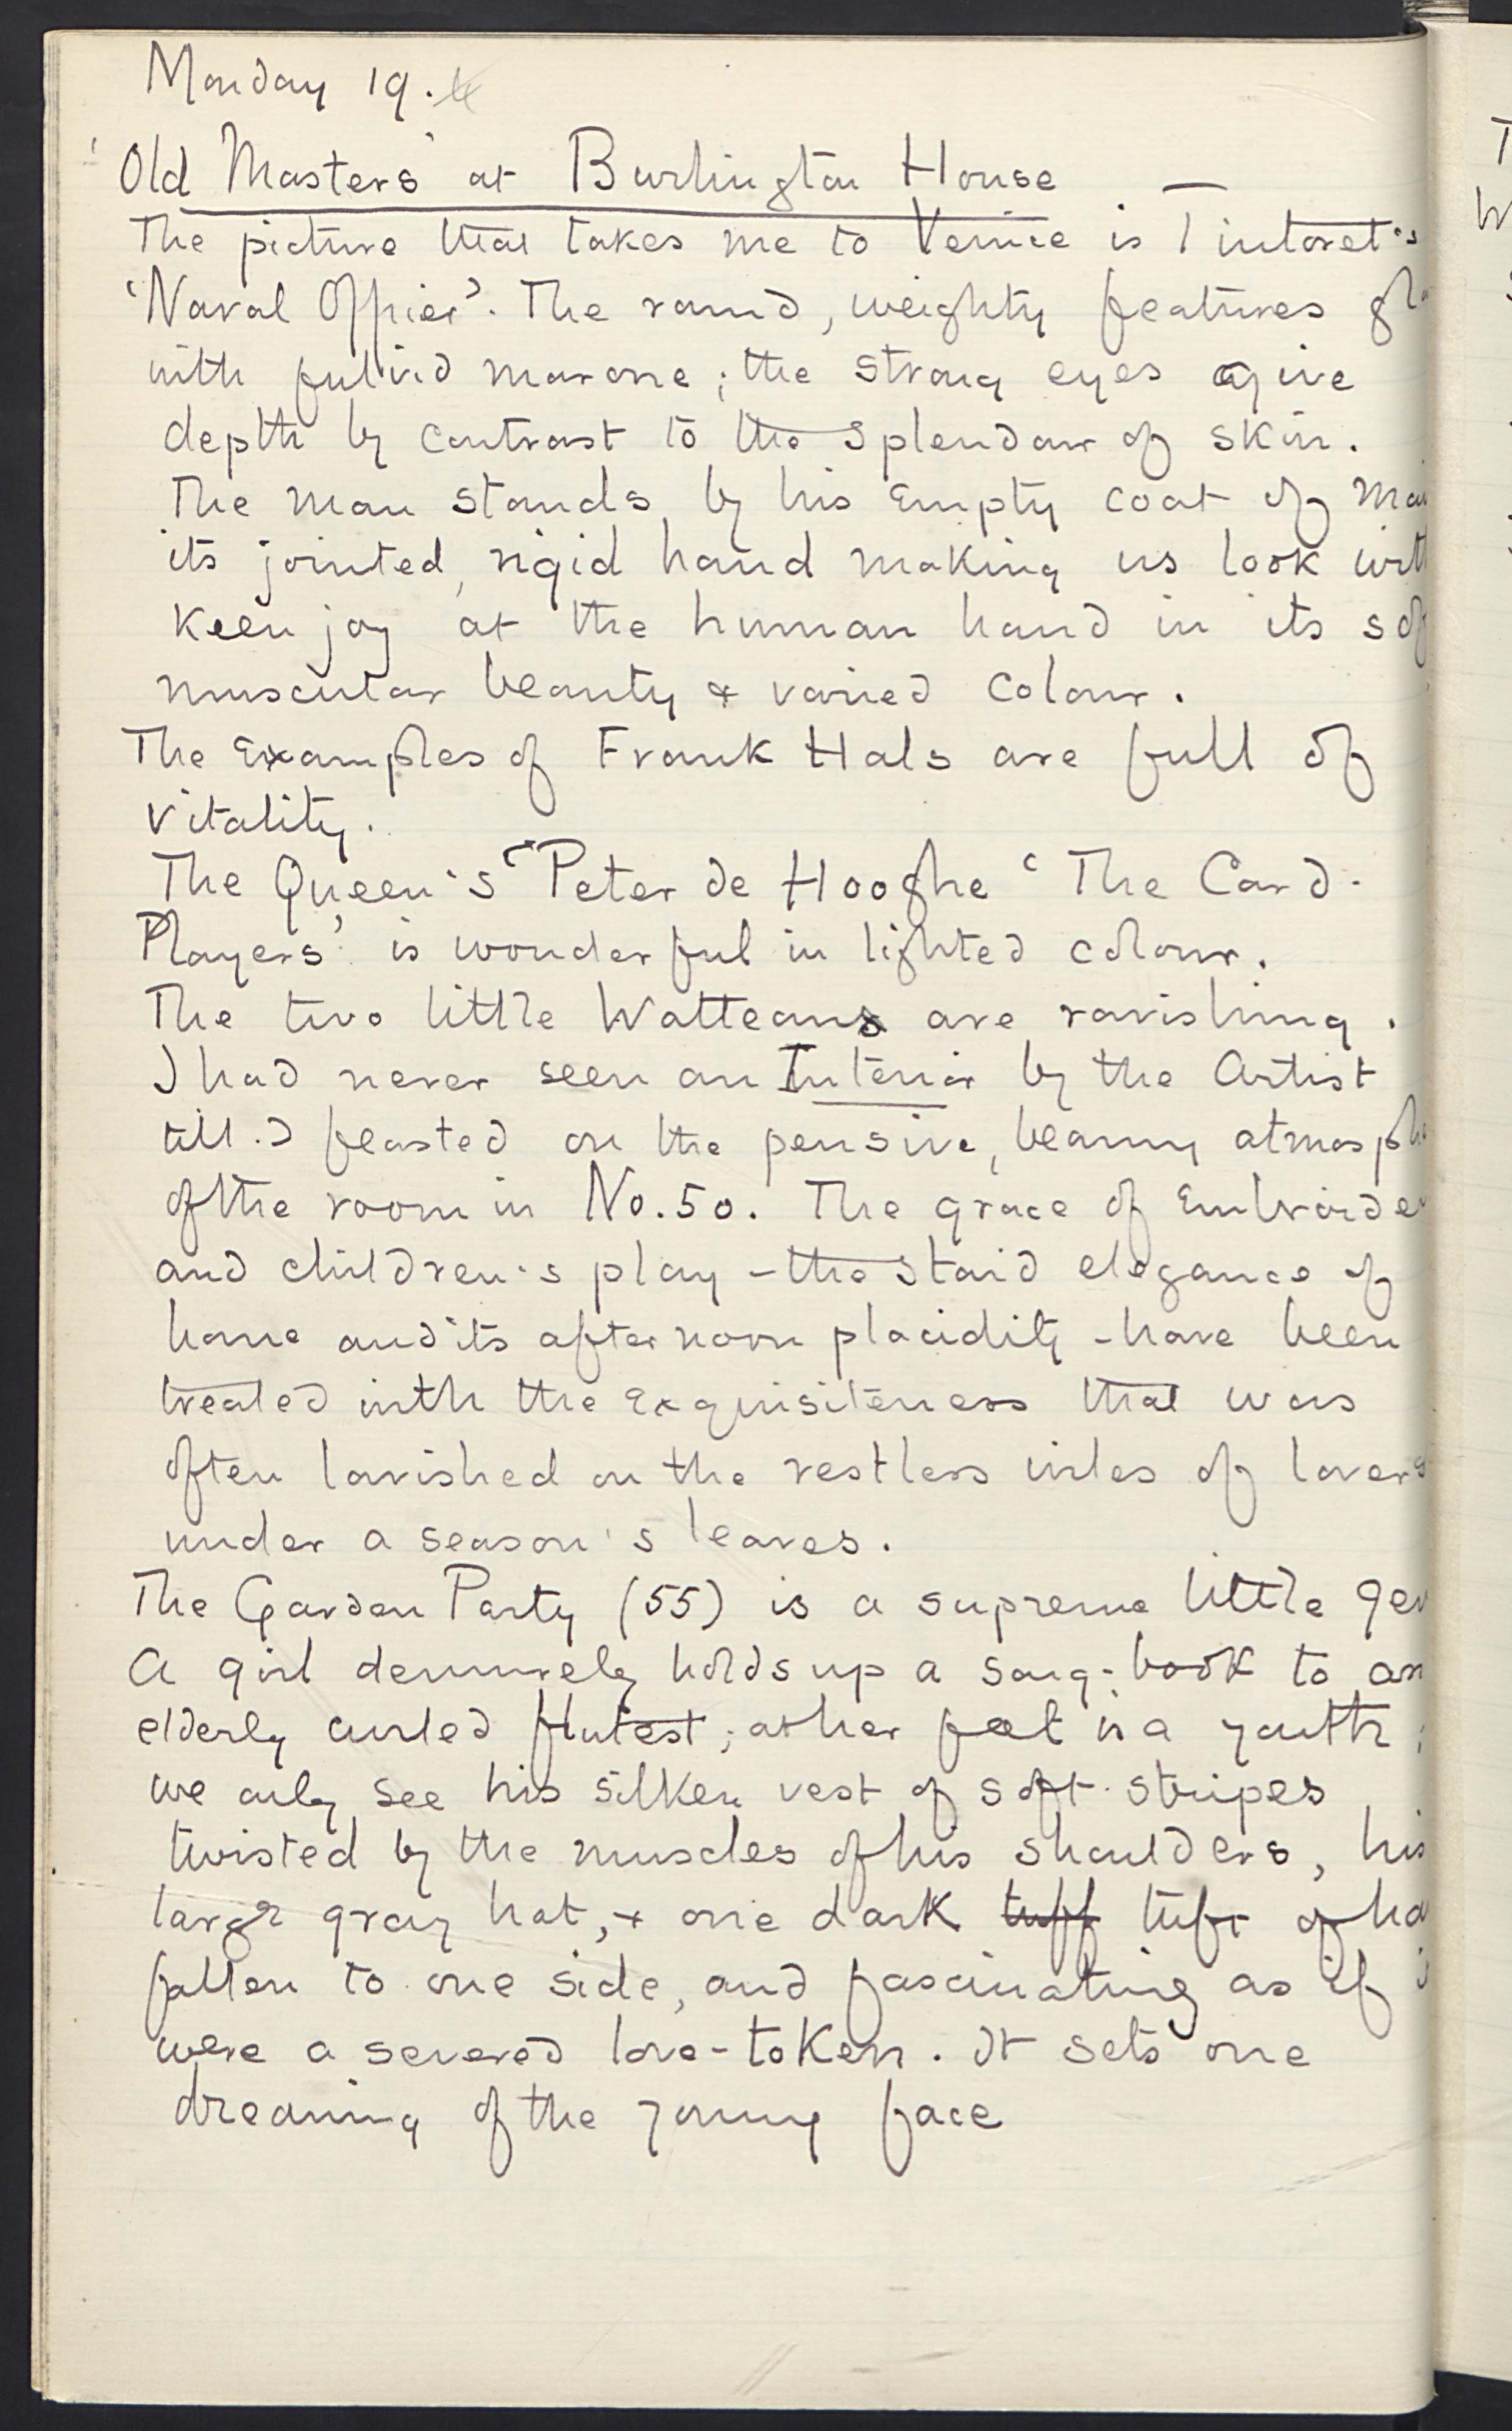 Monday 19.
'Old Masters' at Burlington House —
The picture that takes me to Venice is Tintoret's
'Naval Officer'. The round, weighty features
with fulvid marone; the strong eyes give
depth by contrast to the splendour of skin.
The man stands by his empty coat of
its jointed, rigid hand making us look with
keen joy at the human hand in its
muscular beauty & varied colour.
The Examples of Frank Hals are full of
vitality.
The Queen's Peter de Hooghe 'The Card-
Players' is wonderful in lighted colour.
The two little Watteaus are ravishing.
I had never seen an Interior by the Artist
till I feasted on the pensive, beamy
of the room in No. 50. The grace of
and children's play – the staid elegance of
home and its afternoon placidity – have been
treated with the exquisiteness that was
often lavished on the restless isles of lovers
under a season's leaves.
The Garden Party (55) is a supreme little
A girl demurely holds up a song-book to an
elderly curled flutest; at her feet is a youth;
we only see his silken vest of soft stripes
twisted by the muscles of his shoulders, his
large gray hat, & one dark tuff tuft of
fallen to one side, and fascinating as if
were a severed love-token. It sets one
dreaming of the young face